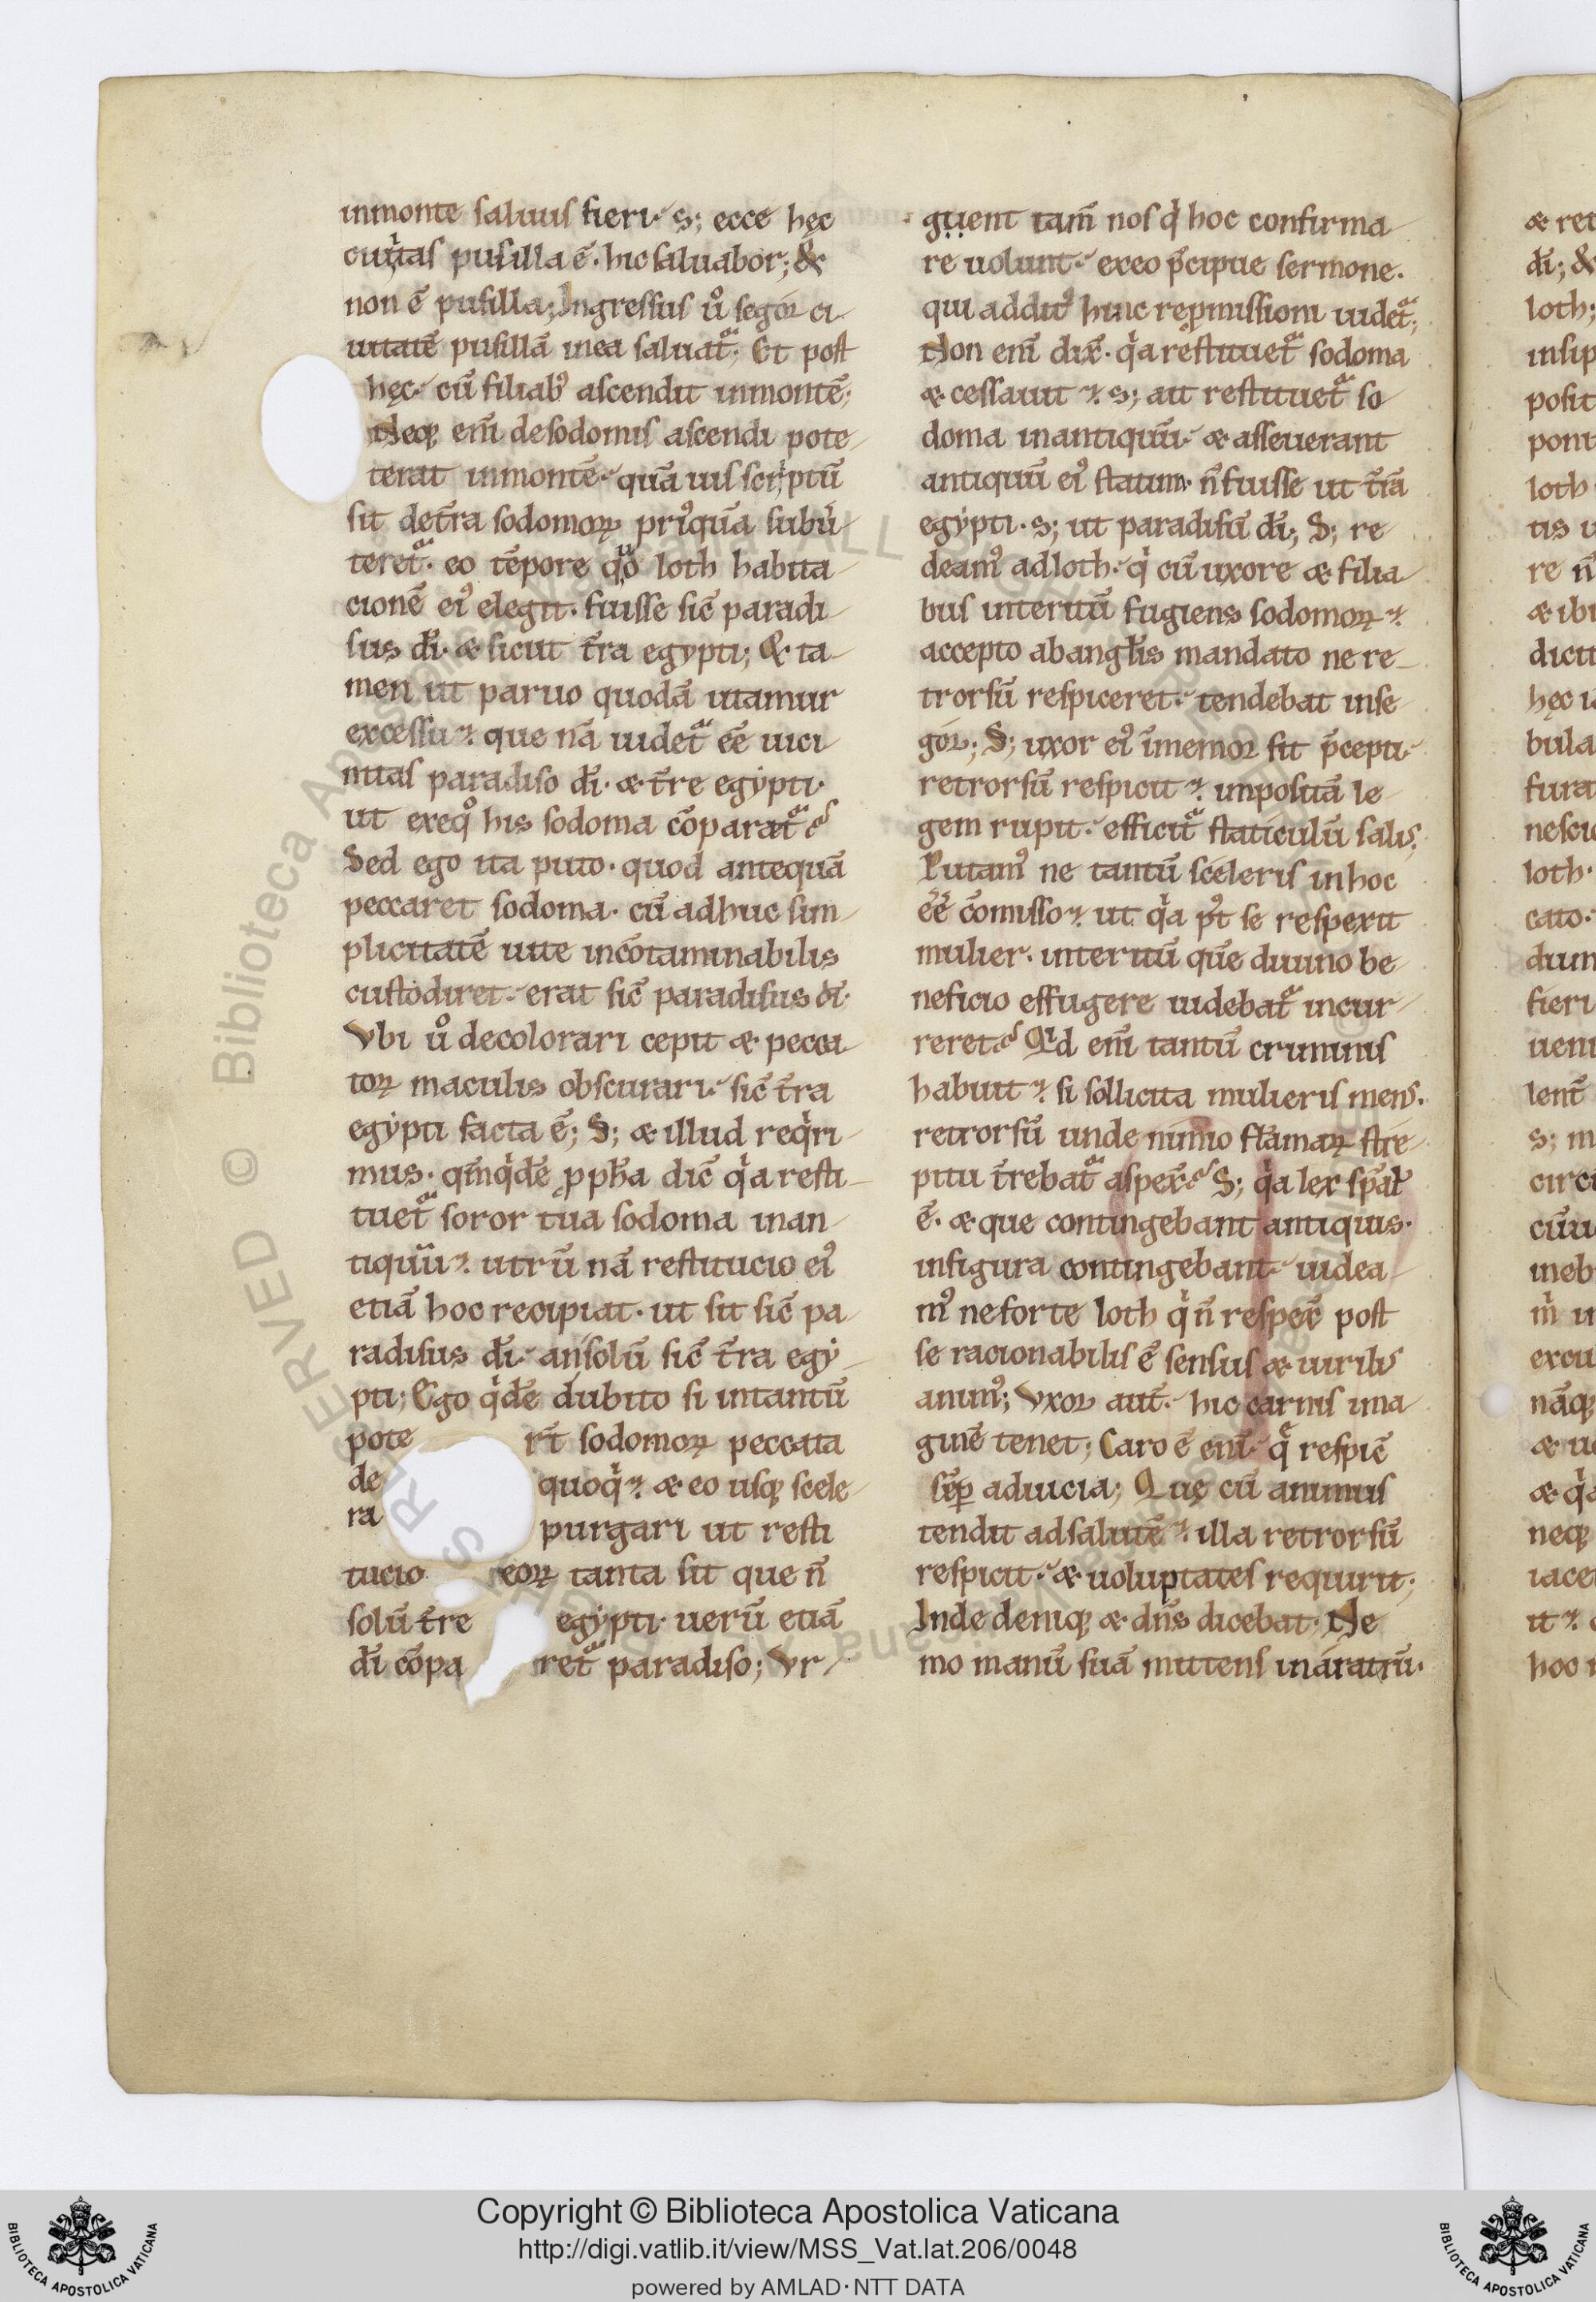 inmonte saluus fieri. s; ecce hęc
ciuitas pusilla ē. hic saluabor; &
non ē pusilla; Ingressus ůo segor ci-
uitatē pusillā inea saluatᷓ; Et post
hęc. cū filiabꝰ ascendit inmontē;
Neqꝫ enī desodomis ascendi pote-
terat inmontē. quā uis scriptū
sit det̄ra sodomoꝝ priꝰquā subu̓-
teretᷓ. eo tēpore quo loth habita-
cionē eiꝰ elegit. fuisse sic̄ paradi-
sus dī. & sicut t̄ra egypti; & ta-
men ut paruo quodā utamur
excessu. que nā uidetᷓ eē uici-
nitas paradiso dī. & t̄re egypti.
ut exeqͦ his sodoma cōparatᷓ
Sed ego ita puto. quod antequā
peccaret sodoma. cū adhuc sim-
plicitatē uite incōtaminabilis
custodiret. erat sic̄ paradisus dī.
Vbi ůo decolorari cepit & pecca-
toꝝ maculis obscurari. sic̄ t̄ra
egypti facta ē; S; & illud reqͥri-
mus. qm̄qͥdē ꝓph̄a dic̄ qͥa resti-
tuetᷓ soror tua sodoma inan-
tiquū. utrū nā restitucio eiꝰ
etiā hoc recipiat. ut sit sic̄ pa-
radisus dī. an solū sic̄ t̄ra egy-
pti; Ego qͥdē dubito si intantū
pote rt̄ sodomoꝝ peccata
de quoqͥ. & eo usqꝫ scele-
ra purgari ut resti
tucio eoꝝ tanta sit que n̄
solū t̄re egypti. uerū etiā
dī cōpa retᷓ paradiso; Vr-
guent tam̄ nos qͥ hoc confirma-
re uolunt. exeo p̄cipue sermone.
qui additꝰ huic repmissioni uidetᷓ;
Non enī dix̄. qͥa restituetᷓ sodoma
& cessauit. s; ait restituetᷓ so-
doma inantiquū. & asseuerant
antiquū eiꝰ statum. n̄ fuisse ut t̄rā
egypti. s; ut paradisū dī; S; re-
deamꝰ adloth. qͥ cū uxore & filia-
bus interitū fugiens sodomoꝝ.
accepto abangłis mandato ne re-
trorsū respiceret. tendebat inse-
gor; S; uxor eiꝰ īmemor fit p̄cepti.
retrorsū respicit. impositā le-
gem rupit. efficitᷓ staticulū salis;
Putamꝰ ne tantū sceleris inhoc
eē cōmisso. ut qͥa pꝰt se respexit
mulier. interitū quē diuino be-
neficio effugere uidebatᷓ incur-
reret Qͥd enī tantū criminis
habuit. si sollicita mulieris mens.
retrorsū unde nimio flāmaꝝ stre-
pitu t̄rebatᷓ aspex̄ S; qͥa lex sp̄alͥ
ē. & que contingebant antiquis.
infigura contingebant. uidea-
mꝰ neforte loth qͥ n̄ respex̄ post
se racionabilis ē sensus & uirilis
animꝰ; Vxor aut̄. hic carnis ima-
ginē tenet; Caro ē enī. qᷓ respic̄
sēp aduicia; Quę cū animus
tendit adsalutē. illa retrorsū
respicit. & uoluptates requirit;
Inde deniqꝫ & dn̄s dicebat. Ne-
mo manū suā mittens inaratrū.
Copyright © Biblioteca Apostolica Vaticana
http://digi.vatlib.it/view/MSS_Vat.lat.206/0048
powered by AMLAD·NTT DATA
BIBLIOTECA APOSTOLICA VATICANA
BIBLIOTECA APOSTOLICA VATICANA